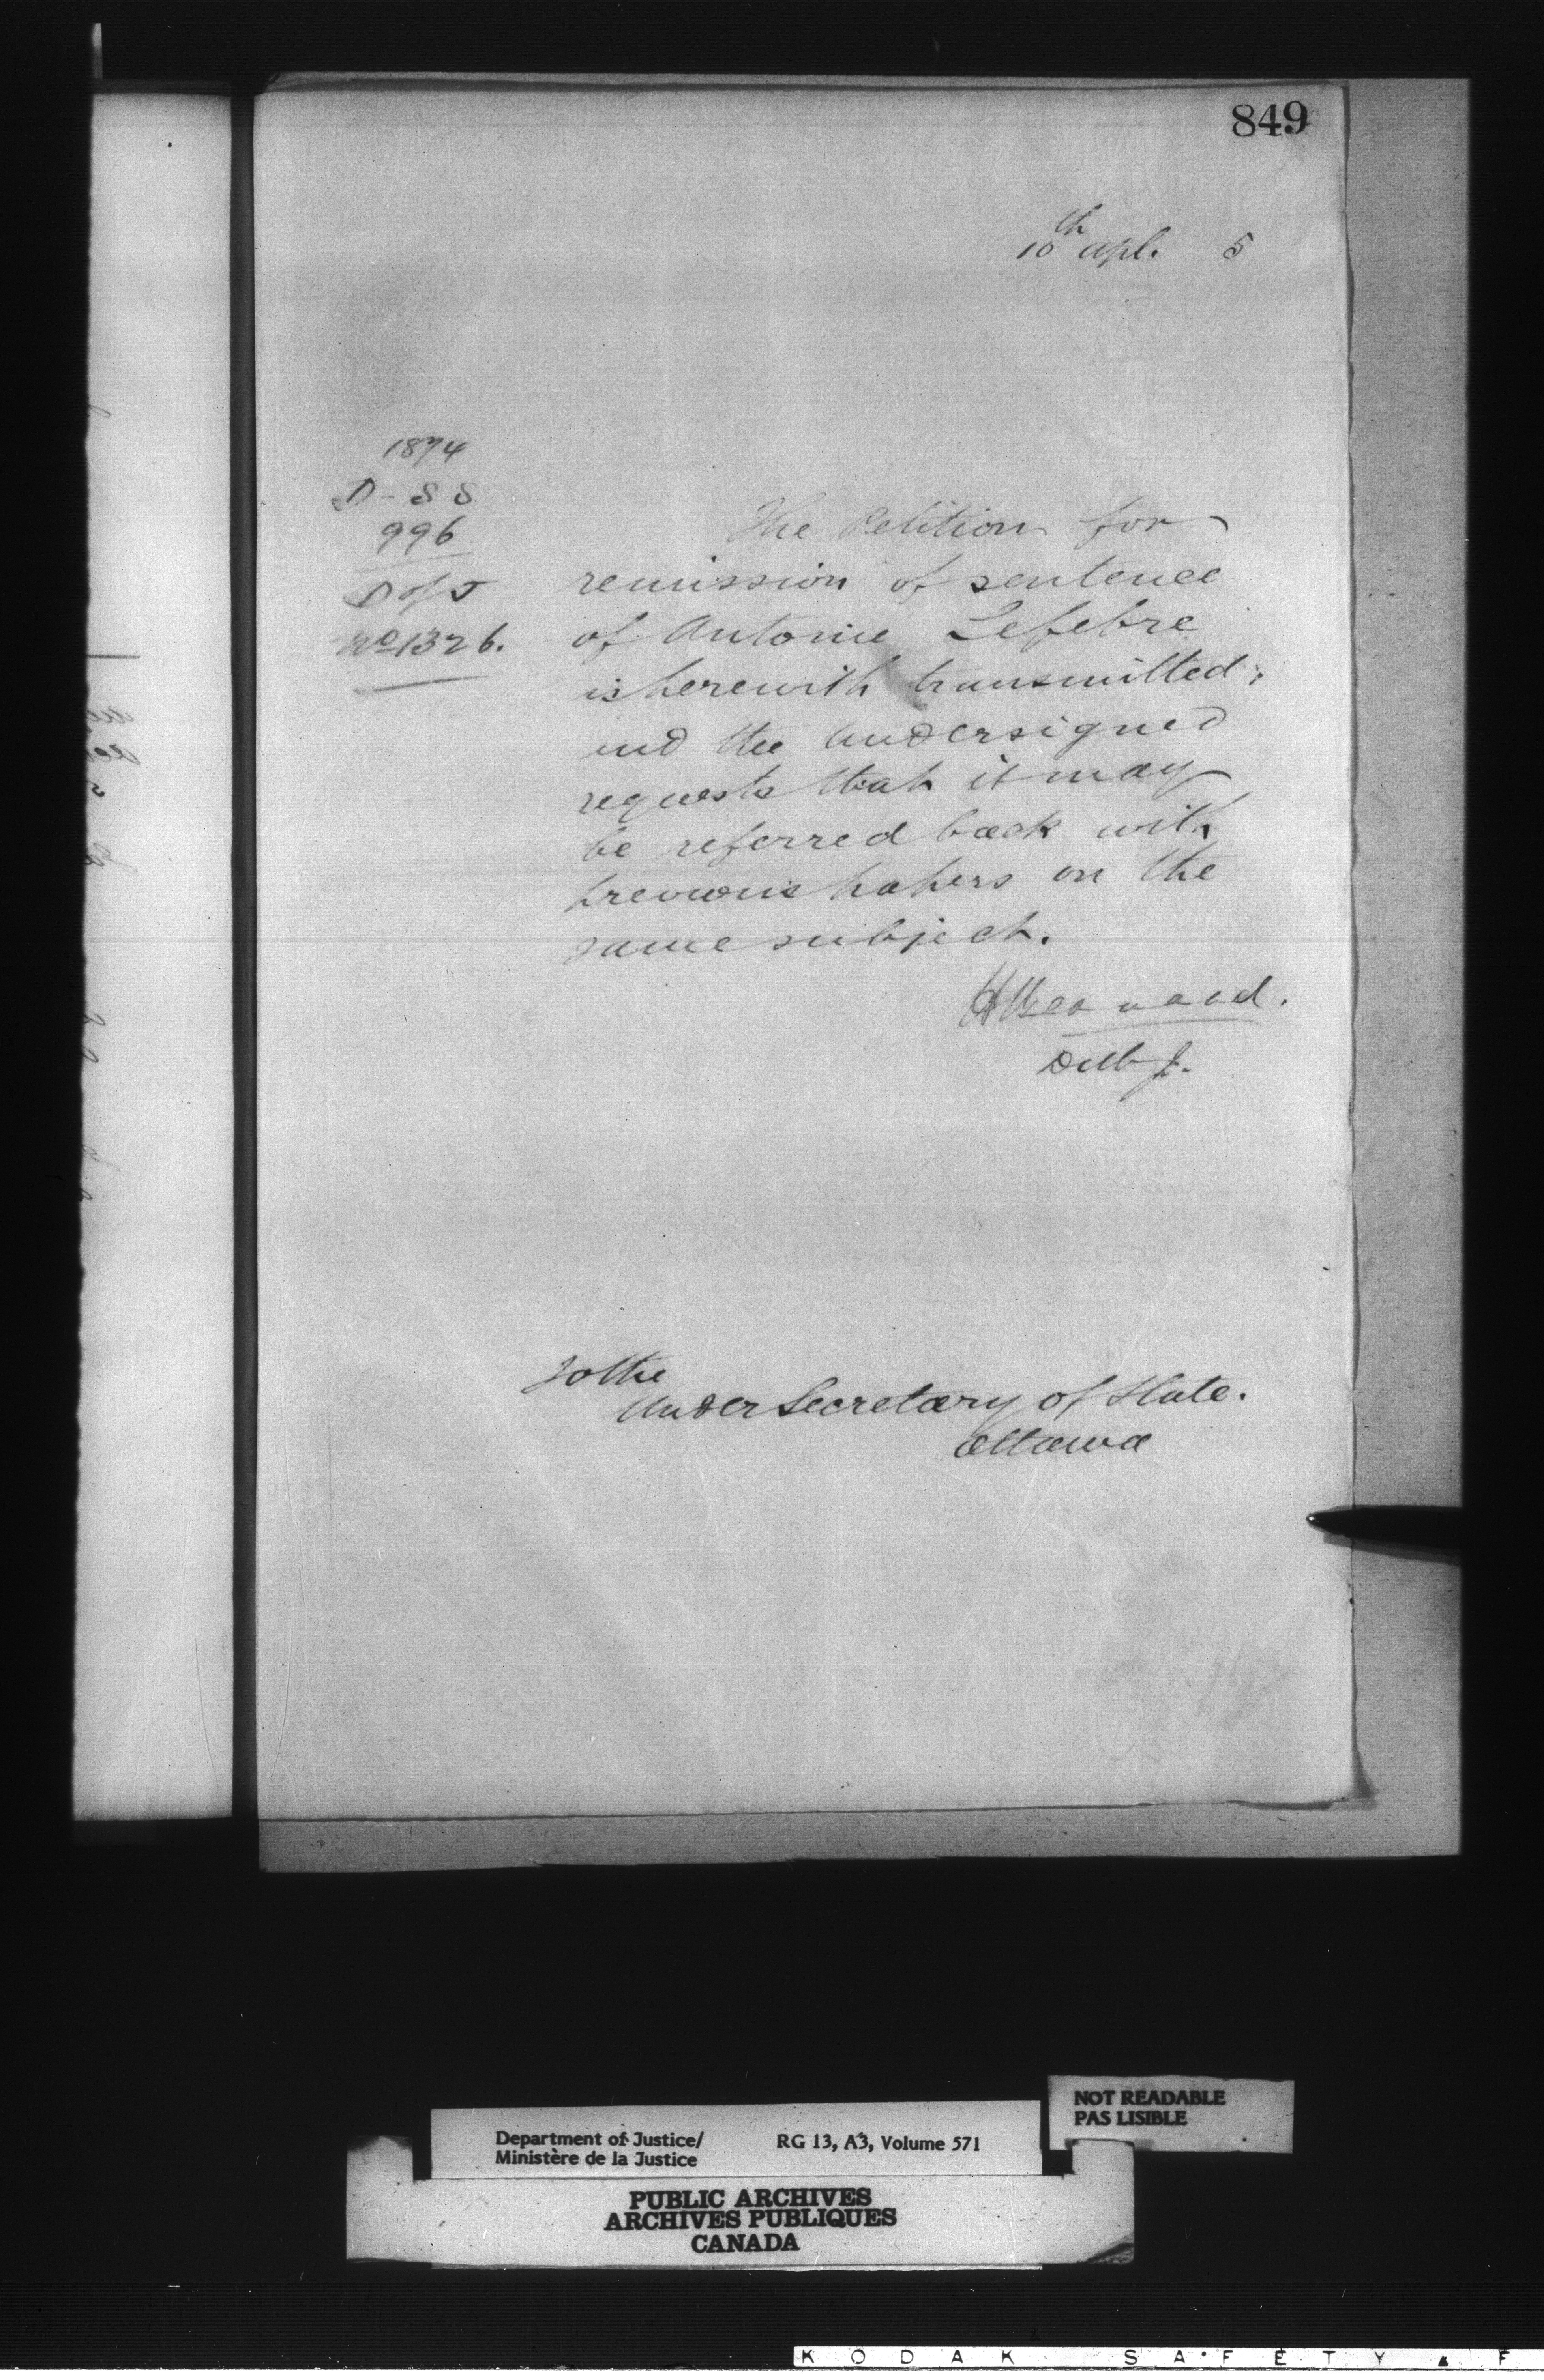 849
10th Apl. 5
1874
D-SS
996
D of J
No 1326.
The Petition for
remission of sentence
of Antoine Lefebre
is herewith transmitted;
and the undersigned
requests that it may
be referred back with
previous papers on the
same subject.
H Bernard.
D M J.
To the
Under Secretary of State.
Ottawa
NOT READABLE
PAS LISIBLE
Department of Justice/ RG 13, A3, Volume 571
Ministère de la Justice
PUBLIC ARCHIVES
ARCHIVES PUBLIQUES
CANADA
KODAK SAFETY F